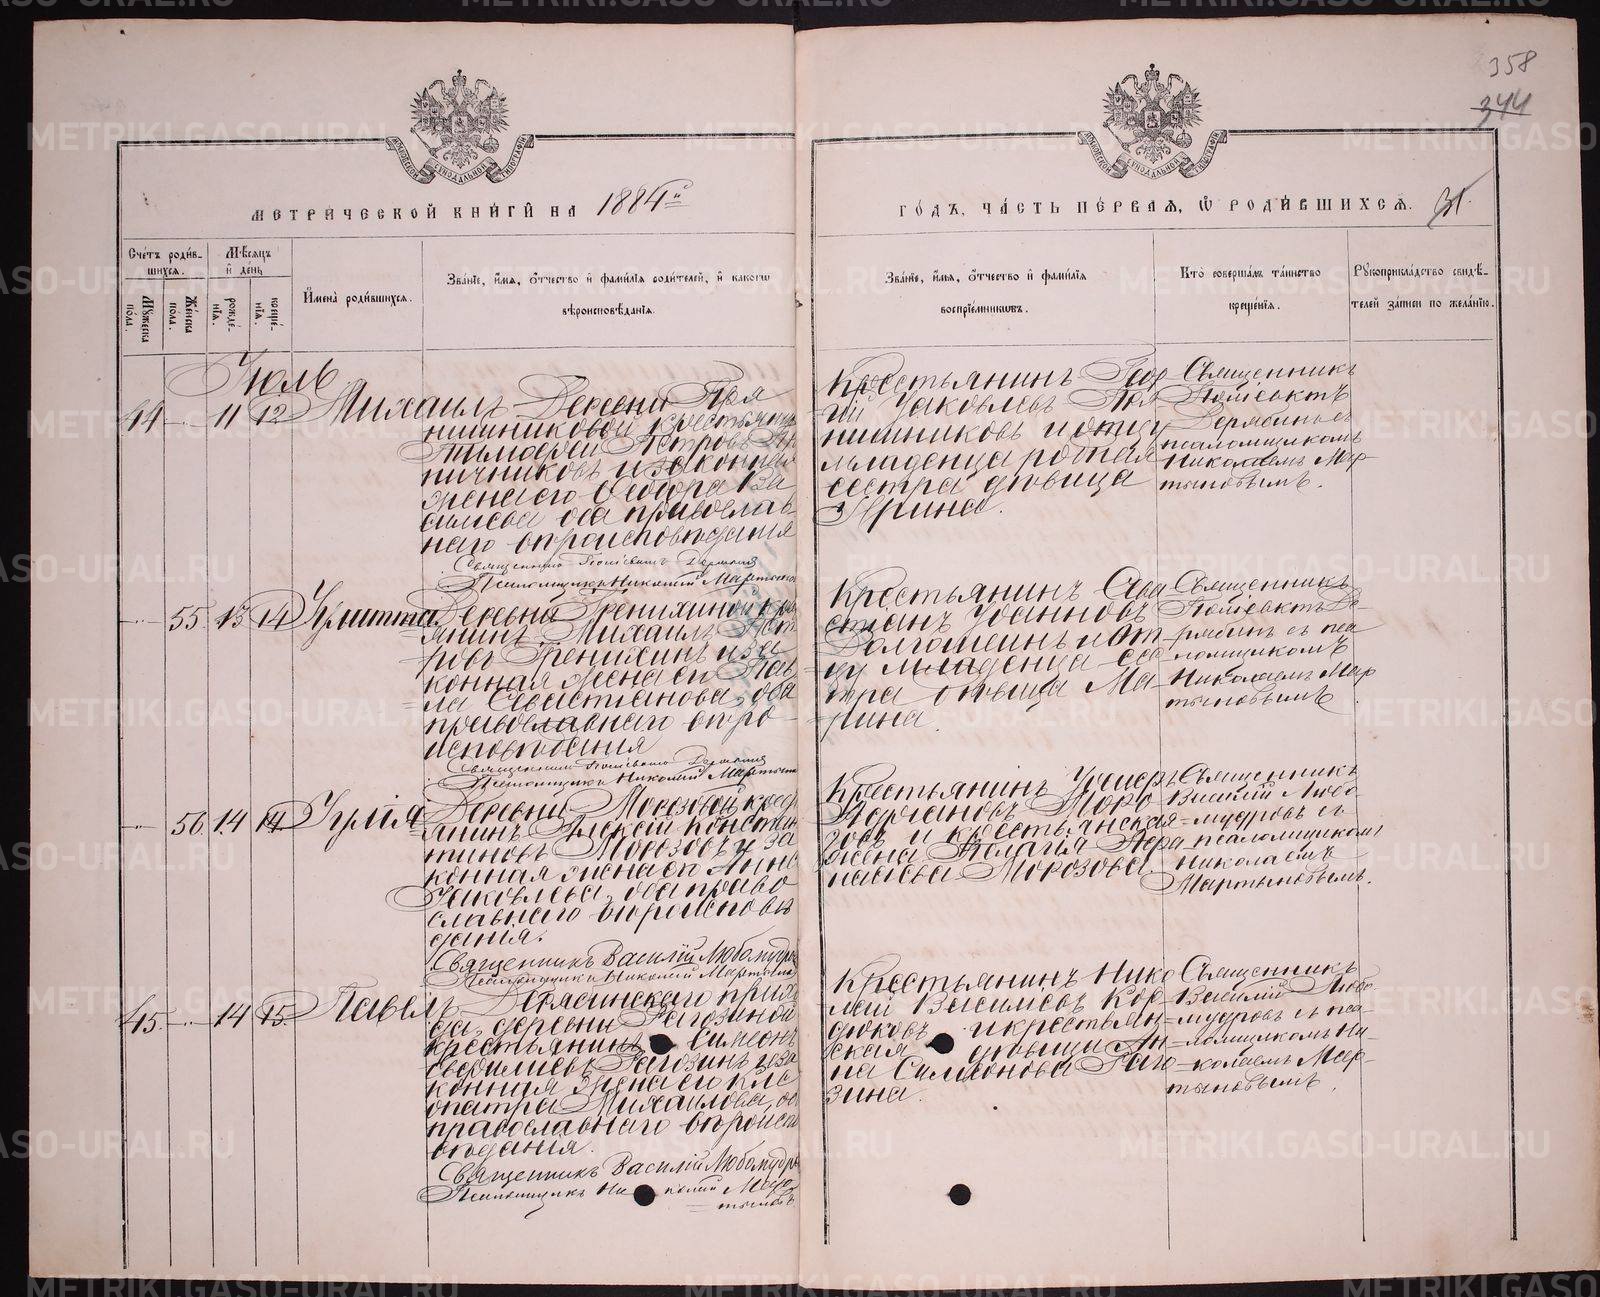 358
344
МЕТРИЧЕСКОЙ КНИГИ НА 1884й
ГОДЪ, ЧАСТЬ ПЕРВАЯ, Ѿ РОДИВШИХСЯ.
Счетъ родившихся.
Мѣсяцъ и день
Мужеска пола.
Женска пола.
рожденія.
крещенія.
Имена родившихся.
Званіе, имя, отчество и фамилія родителей, и какого
вѣроисповѣданія.
Званіе, имя, отчество и фамилія
воспріемниковъ.
Кто совершалъ таинство
крещенія.
Рукоприкладство свидѣ-
телей записи по желанію.
Іюль
44 - 11 12 Михаилъ
Деревни Пря
нишниковой крестьянинъ
Тимофей Петровъ Пря
ничниковъ и законная
жена его Ѳеодора Ва
сильева оба православ
наго вѣроисповѣданія
Псаломщикъ Николай Мартынов
Крестьянинъ Геор
гій Яковлевъ Пря
нишниковъ и отцу
младенца родная
сестра дѣвица
Ирина.
Священникъ
псаломщикомъ
Николаемъ Мар-
тыновымъ.
- 55 13 14 Іулитта
Деревни Гренихиной крес
янинъ Михаилъ Пет
ровъ Гренихинъ и за
конная жена его Пав
ла Севастіанова, оба
православнаго вѣро
исповѣданія
Псаломщикъ Николай Мартынов
Крестьянинъ Сева
стіанъ Іоанновъ
Долгошеинъ и от
цу младенца сес
тра дѣвица Ма-
рина.
Священникъ
рябинъ съ пса
ломщикомъ
Николаемъ Мар
тыновымъ
- 56 14 14 Іулія
Деревни Морозовой крес
янинъ Алексѣй Констан
тиновъ Морозовъ и за
конная жена его Анна
Яковлева, оба право
славнаго вѣроисповѣ
данія.
Священникъ Василій Любомудро
Псаломщикъ Николай Мартынов
Крестьянинъ
Моро
зовъ и крестьянская
жена Пелагія Аѳа
насьева Морозова.
Священникъ
Василій Любо
мудровъ съ
псаломщикомъ
Николаемъ
Мартыновымъ.
45. - 14 15. Павелъ
Дерябинскаго прихо
да, деревни Рагозиной
крестьянинъ Симеонъ
Рагозинъ и за
конная жена его Кле
опатра Михаилова, оба
православнаго вѣроиспо
вѣданія.
Священникъ Василій Любомудро
Псаломщикъ Николай Мар
тыновъ
Крестьянинъ Нико
лай Васильевъ Кор-
дюковъ и крестьян-
ская дѣвица Ан-
на Симеонова Раго
зина.
Священникъ
Василій Любо
мудровъ съ пса-
ломщикомъ Ни-
колаемъ Мар-
тыновымъ.
METRIKI.GASO-URAL.RU